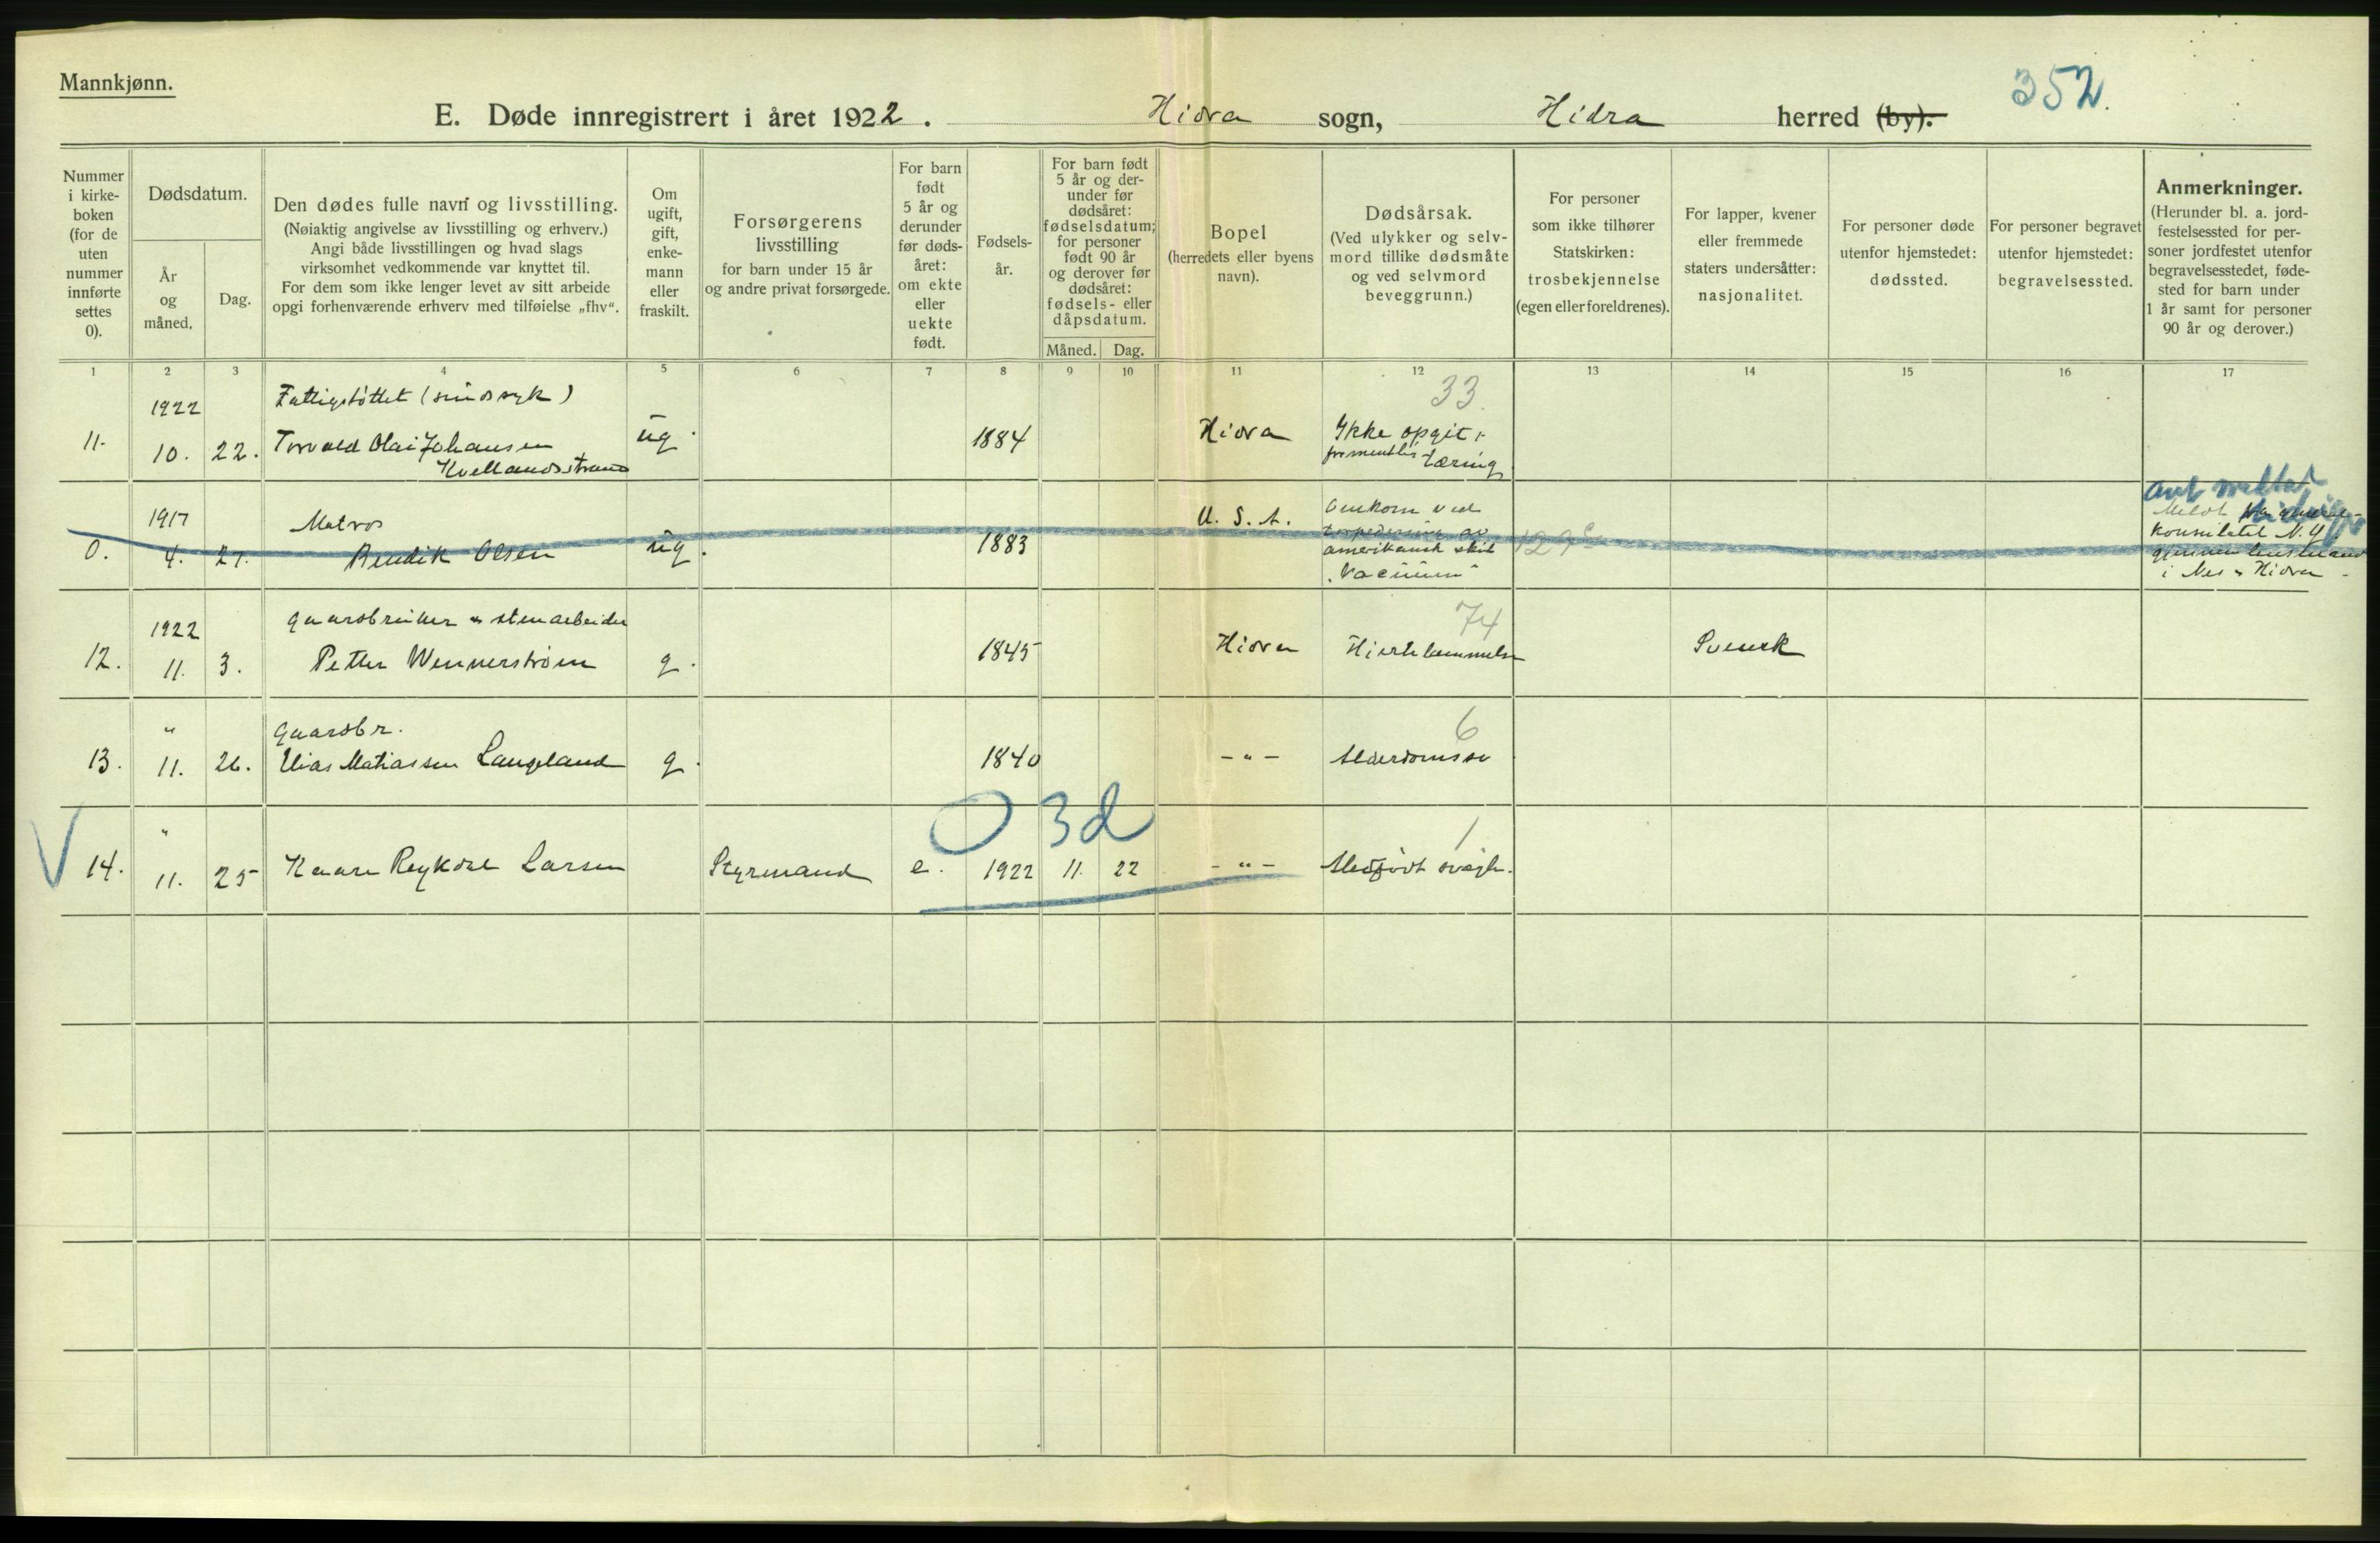 Mannkjønn.
352.
E. Døde innregistrert i året 1922. Hidra sogn, Hidra herred (by).
Nummer
i kirke-
boken
(for de
uten
nummer
innførte
settes
0).
Dødsdatum.
År
og
måned.
Dag.
Den dødes fulle navn og livsstilling.
(Nøiaktig angivelse av livsstilling og erhverv.)
Angi både livsstillingen og hvad slags
virksomhet vedkommende var knyttet til.
For dem som ikke lenger levet av sitt arbeide
opgi forhenværende erhverv med tilføielse „fhv“.
Om
ugift,
gift,
enke-
mann
eller
fraskilt.
Forsørgerens
livsstilling
for barn under 15 år
og andre privat forsørgede.
For barn
født
5 år og
derunder
før døds-
året:
om ekte
eller
uekte
født.
Fødsels-
år.
For barn født
5 år og der-
under før
dødsåret:
fødselsdatum;
for personer
født 90 år
og derover før
dødsåret:
fødsels- eller
dåpsdatum.
Måned. Dag.
Bopel
(herredets eller byens
navn).
Dødsårsak.
(Ved ulykker og selv-
mord tillike dødsmåte
og ved selvmord
beveggrunn.)
For personer
som ikke tilhører
Statskirken:
trosbekjennelse
(egen eller foreldrenes).
For lapper, kvener
eller fremmede
staters undersåtter:
nasjonalitet.
For personer døde
utenfor hjemstedet:
dødssted.
For personer begravet
utenfor hjemstedet:
begravelsessted.
Anmerkninger.
(Herunder bl. a. jord-
festelsessted for per-
soner jordfestet utenfor
begravelsesstedet, føde-
sted for barn under
1 år samt for personer
90 år og derover.)
1 2 3 4 5 6 7 8 9 10 11 12 13 14 15 16 17
1922 Fattigstøttet (sindssyk) 33
11. 10. 22. Torvald Olai Johansen ug. 1884 Hidra Ikke opgit,
Kvellandsstrand tæring
1917 Matros U. S. A. Omkom ved
0. 4. 27. Bendik Olsen ug. 1883 torpedering av 129c
amerikansk skib
„Vacuum“
Meldt
konsulatet N.Y.
gjennem lensmand
i Nes & Hidra
1922 gaardbruker & stenarbeider 74
12. 11. 3. Petter Wennerstrøm g. 1845 Hidra Hjertelammelse Svensk
" gaardbr. 6
13. 11. 26. Elias Matiassen Langeland g. 1840 - " - Alderdomssv
0 3d
" 1
V 14. 11. 25 Kaare Reykdal Larsen Styrmand e. 1922 11. 22 - " - Medfødt svagh.